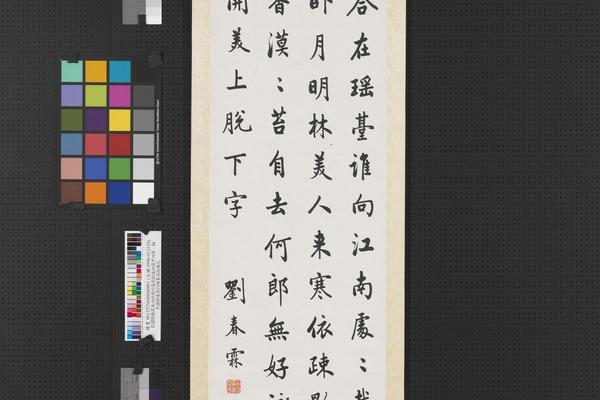 在瑤臺誰向江南處〻
月明林美人來寒依疎影
香漠〻苔自去何郎無好
開美上脫下字
劉春霖